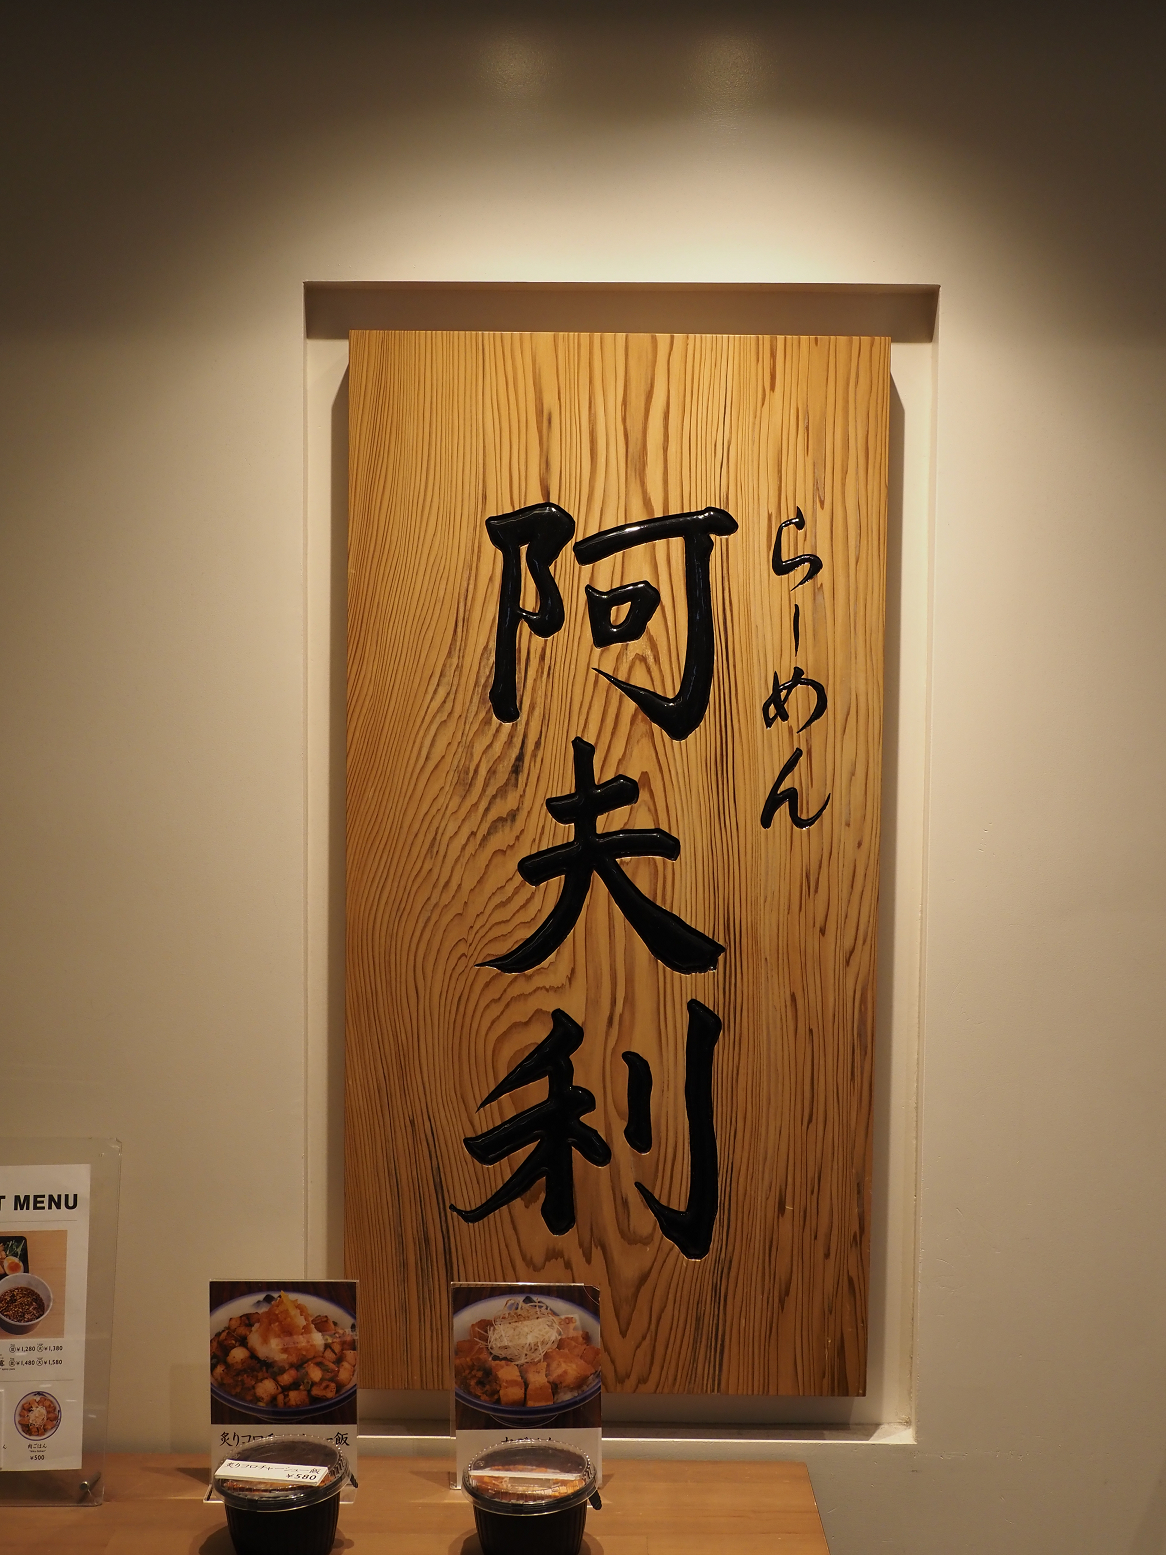 らーめん
阿夫利
T MENU
¥1,280 ¥1,380
¥1,480 ¥1,580
肉ごはん
¥500
炙りコロチャーシュー飯
¥580